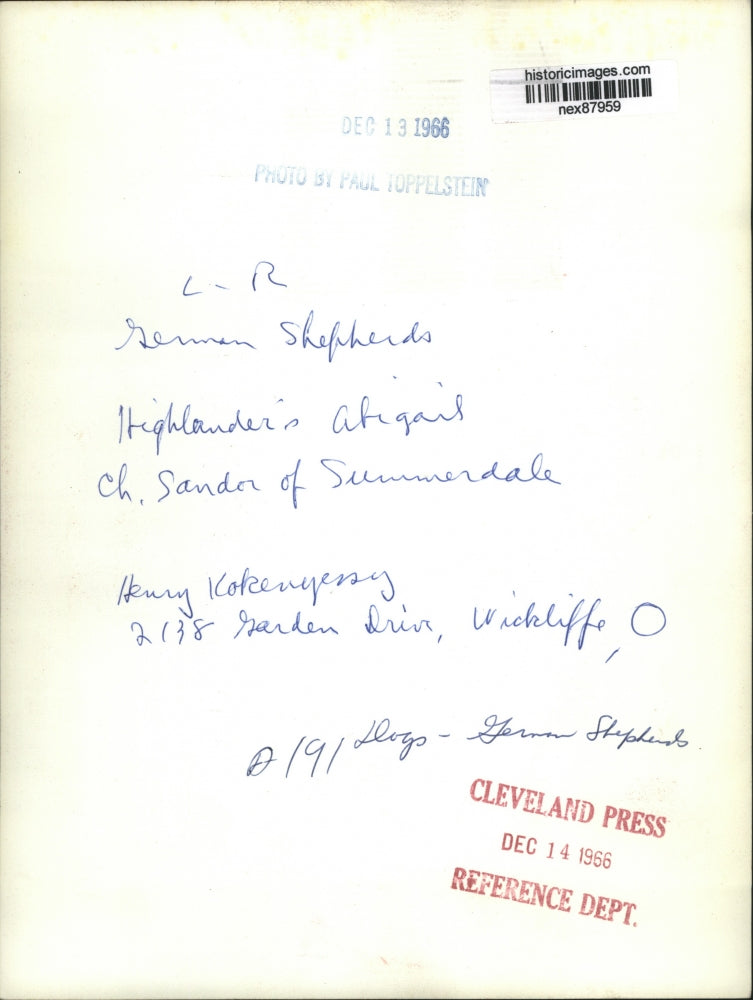 historicimages.com
nex87959
DEC 13 1966
PHOTO BY PAUL TOPPELSTEIN
L - R
German Shepherds
Highlander's Abigail
Ch. Sandor of Summerdale
Henry Kokenyessy
2138 Garden Drive, Wickliffe, O
A/91 Dogs - German Shepherds
CLEVELAND PRESS
DEC 14 1966
REFERENCE DEPT.